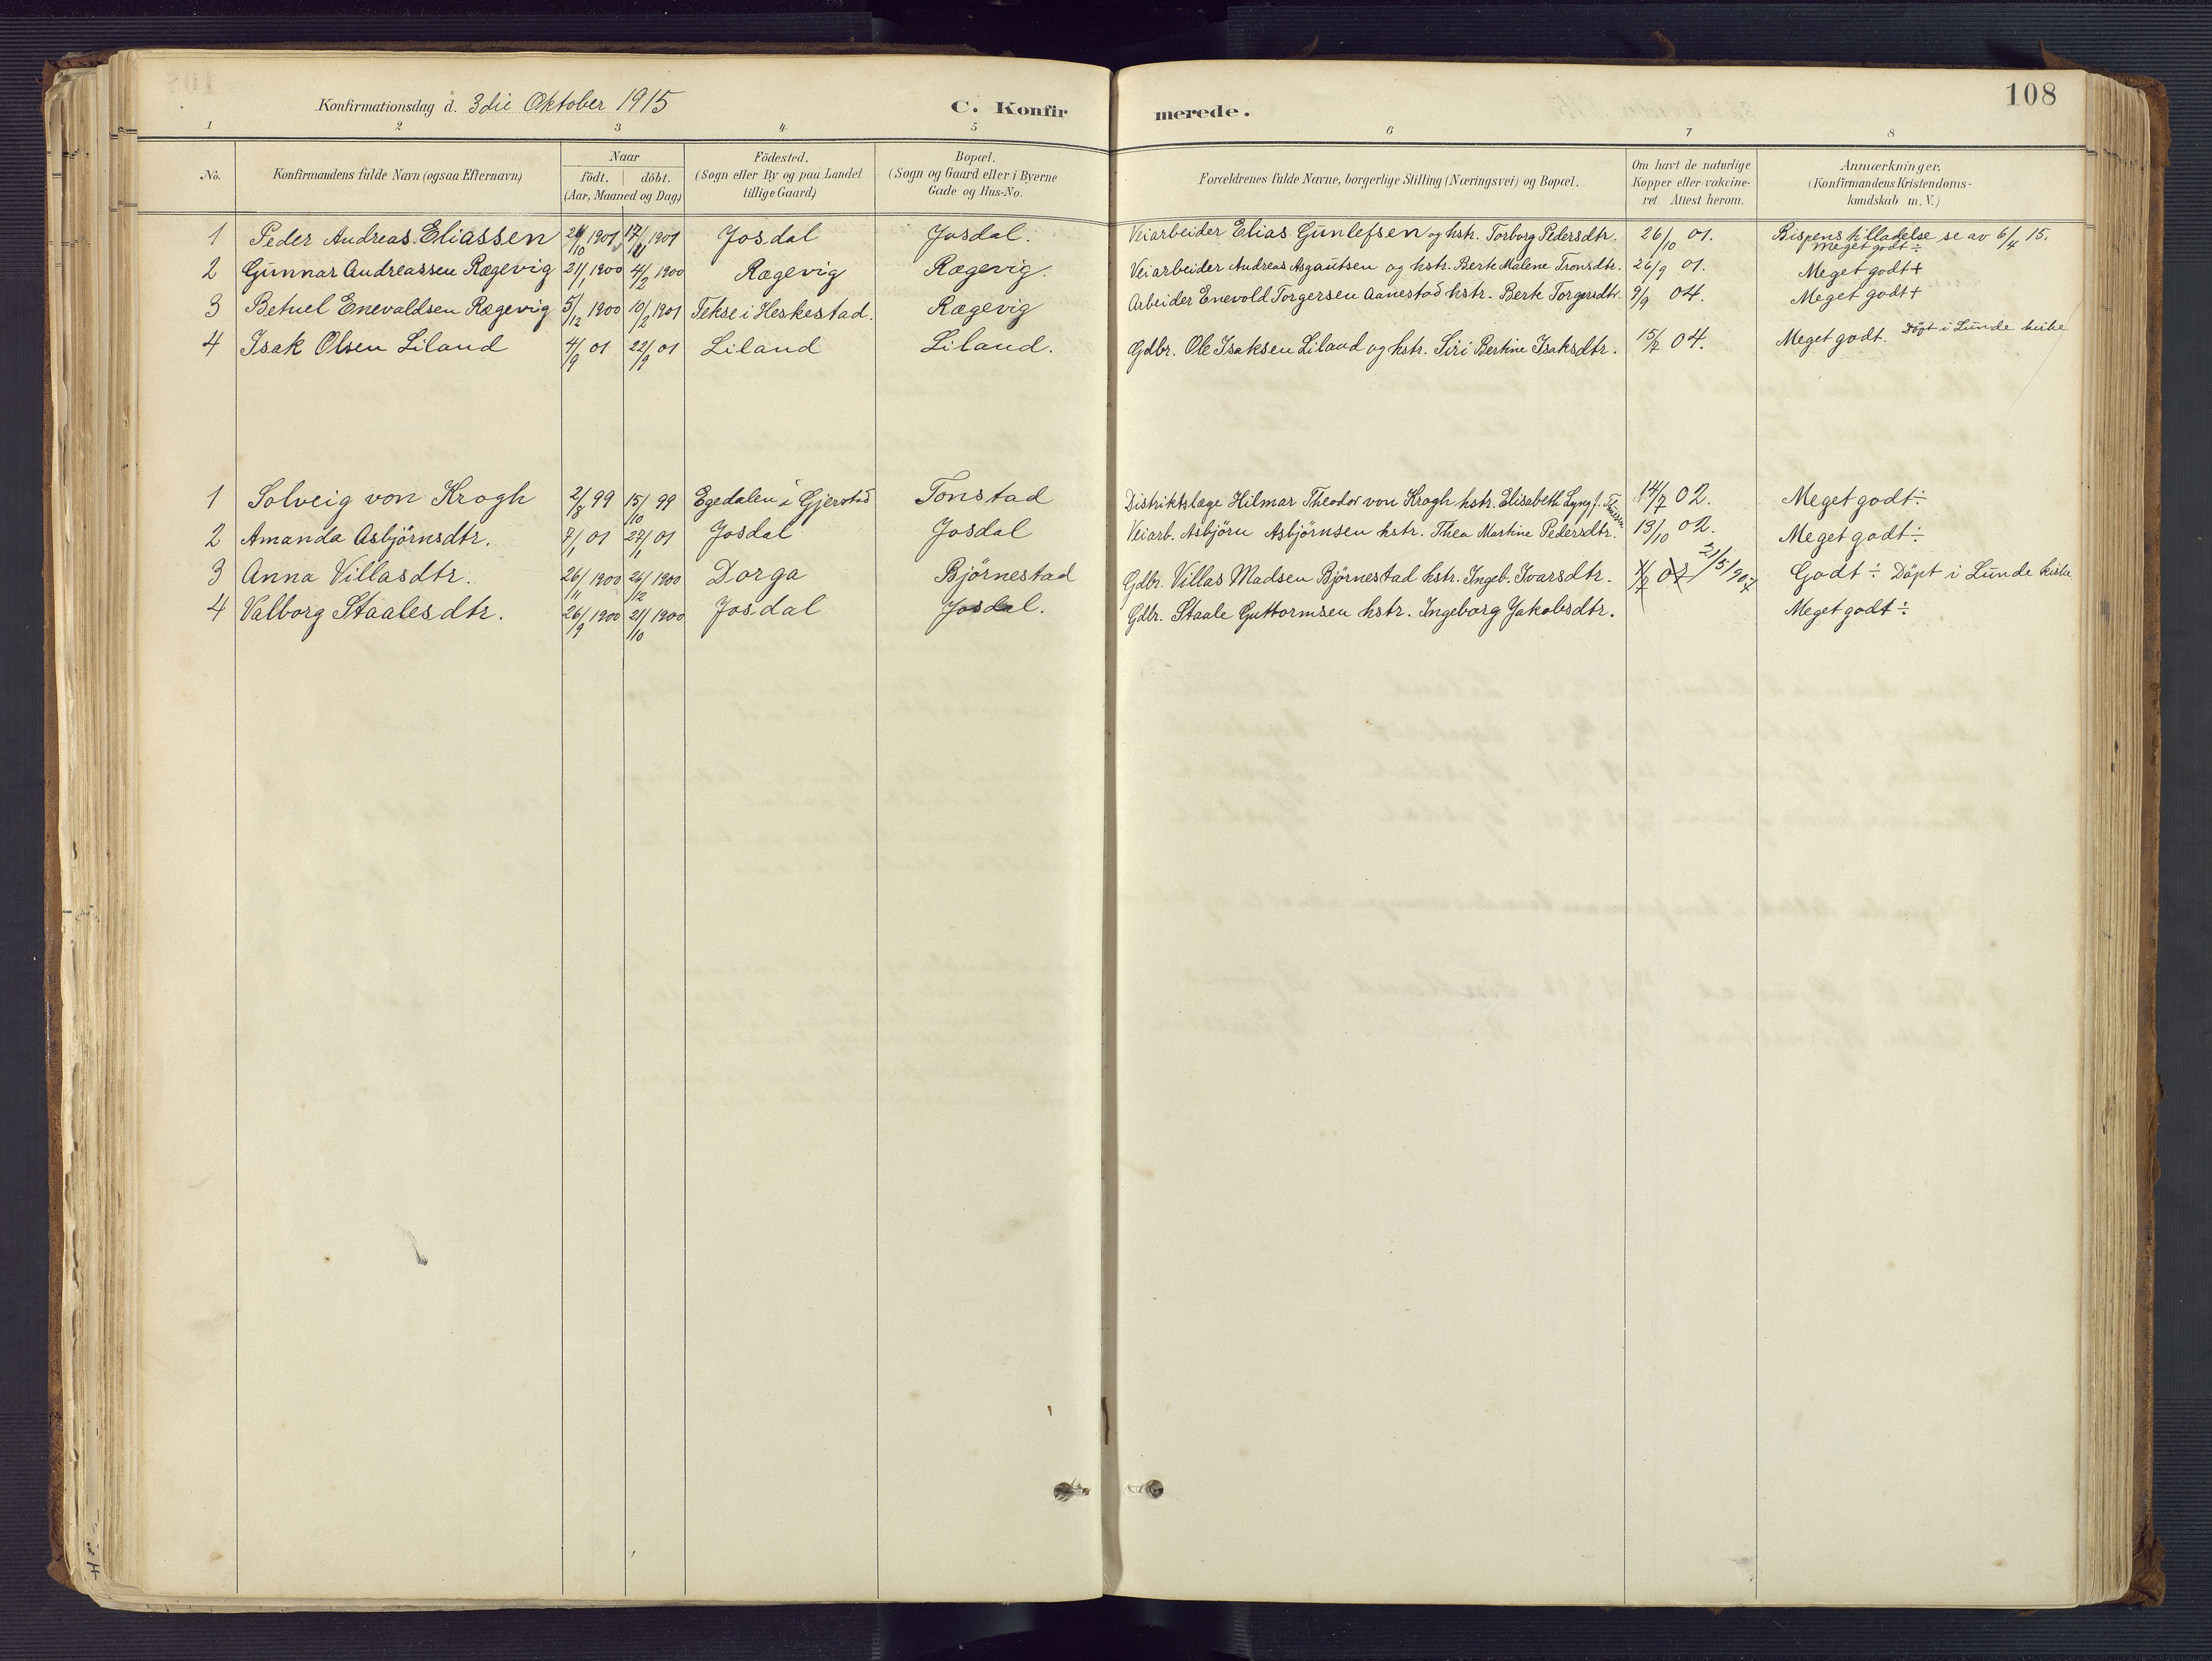 108
Konfirmationsdag d. 3die Oktober 1915 C. Konfirmerede.
1 2 3 4 5 6 7 8
No. Konfirmandens fulde Navn (ogsaa Efternavn) Naar födt. döbt. (Aar, Maaned og Dag) Födested. (Sogn eller By og paa Landet tillige Gaard) Bopæl. (Sogn og Gaard eller i Byerne Gade og Hus-No. Forældrenes fulde Navne, borgerlige Stilling (Næringsvei) og Bopæl. Om havt de naturlige Kopper eller vakcineret. Attest herom. Anmærkninger, (Konfirmandens Kristendomskundskab m. V.)
1 Peder Andreas Eliassen /10 1901 17/ 1901 Josdal Josdal. Veiarbeider Elias Gunlefsen og hstr. Torborg Pedersdtr. 26/10 01. Bispens tilladelse se av 6/4 15. Meget godt ÷
2 Gunnar Andreassen Rægevig 21/1 1900 4/2 1900 Rægevig Rægevig. Veiarbeider Andreas Asgautsen og hstr. Berte Malene Tronsdtr. 26/9 01. Meget godt +
3 Betuel Enevaldsen Rægevig 5/12 1900 10/2 1901 Tekse i Heskestad. Rægevig Arbeider Enevold Torgersen Aanestad hstr. Berte Torgersdtr. 9/9 04. Meget godt +
4 Isak Olsen Liland 4/9 01 22/9 01 Liland Liland. Gdbr. Ole Isaksen Liland og hstr. Siri Bertine Isaksdtr. 15/7 04. Meget godt. Döpt i Lunde kirke
1 Solveig von Krogh 2/8 99 15/10 99 Egedalen i Gjerstad Tonstad Distriktslæge Hilmar Theodor von Krogh hstr. Elisabeth Lyng f. 14/7 02. Meget godt ÷
2 Amanda Asbjörnsdtr. 7/1 01 27/1 01 Josdal Josdal Veiarb. Asbjörn Asbjörnsen hstr. Thea Martine Pedersdtr. 13/10 02. Meget godt ÷
3 Anna Villasdtr. 26/11 1900 26/12 1900 Dorga Björnestad Gdbr. Villas Madsen Björnestad hstr. Ingeb. Ivarsdtr. 21/5 1907 Godt ÷ Döpt i Lunde kirke
4 Valborg Staalesdtr. 26/9 1900 21/10 1900 Josdal Josdal. Gdbr. Staale Guttormsen hstr. Ingeborg Jakobsdtr. Meget godt ÷